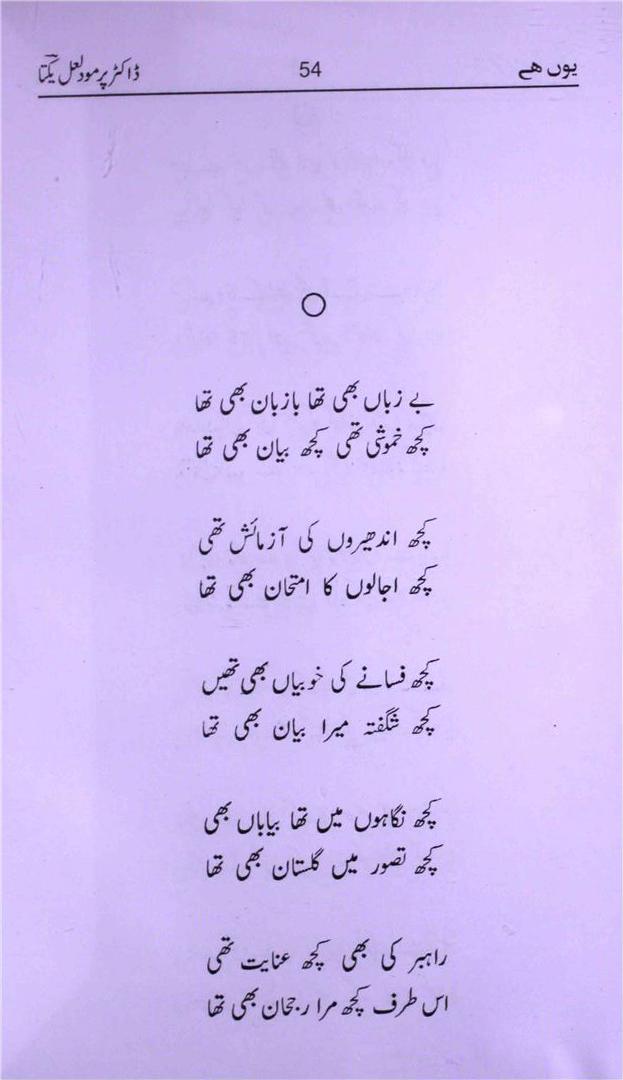 یوں ھے 54 ڈاکٹر پرمود لعل یکتا
بے زباں بھی تھا بازبان بھی تھا
کچھ خموشی تھی کچھ بیان بھی تھا
کچھ اندھیروں کی آزمائش تھی
کچھ اجالوں کا امتحان بھی تھا
کچھ فسانے کی خوبیاں بھی تھیں
کچھ شگفتہ میرا بیان بھی تھا
کچھ نگاہوں میں تھا بیاباں بھی
کچھ تصور میں گلستان بھی تھا
راہبر کی بھی کچھ عنایت تھی
اس طرف کچھ مرا رجحان بھی تھا